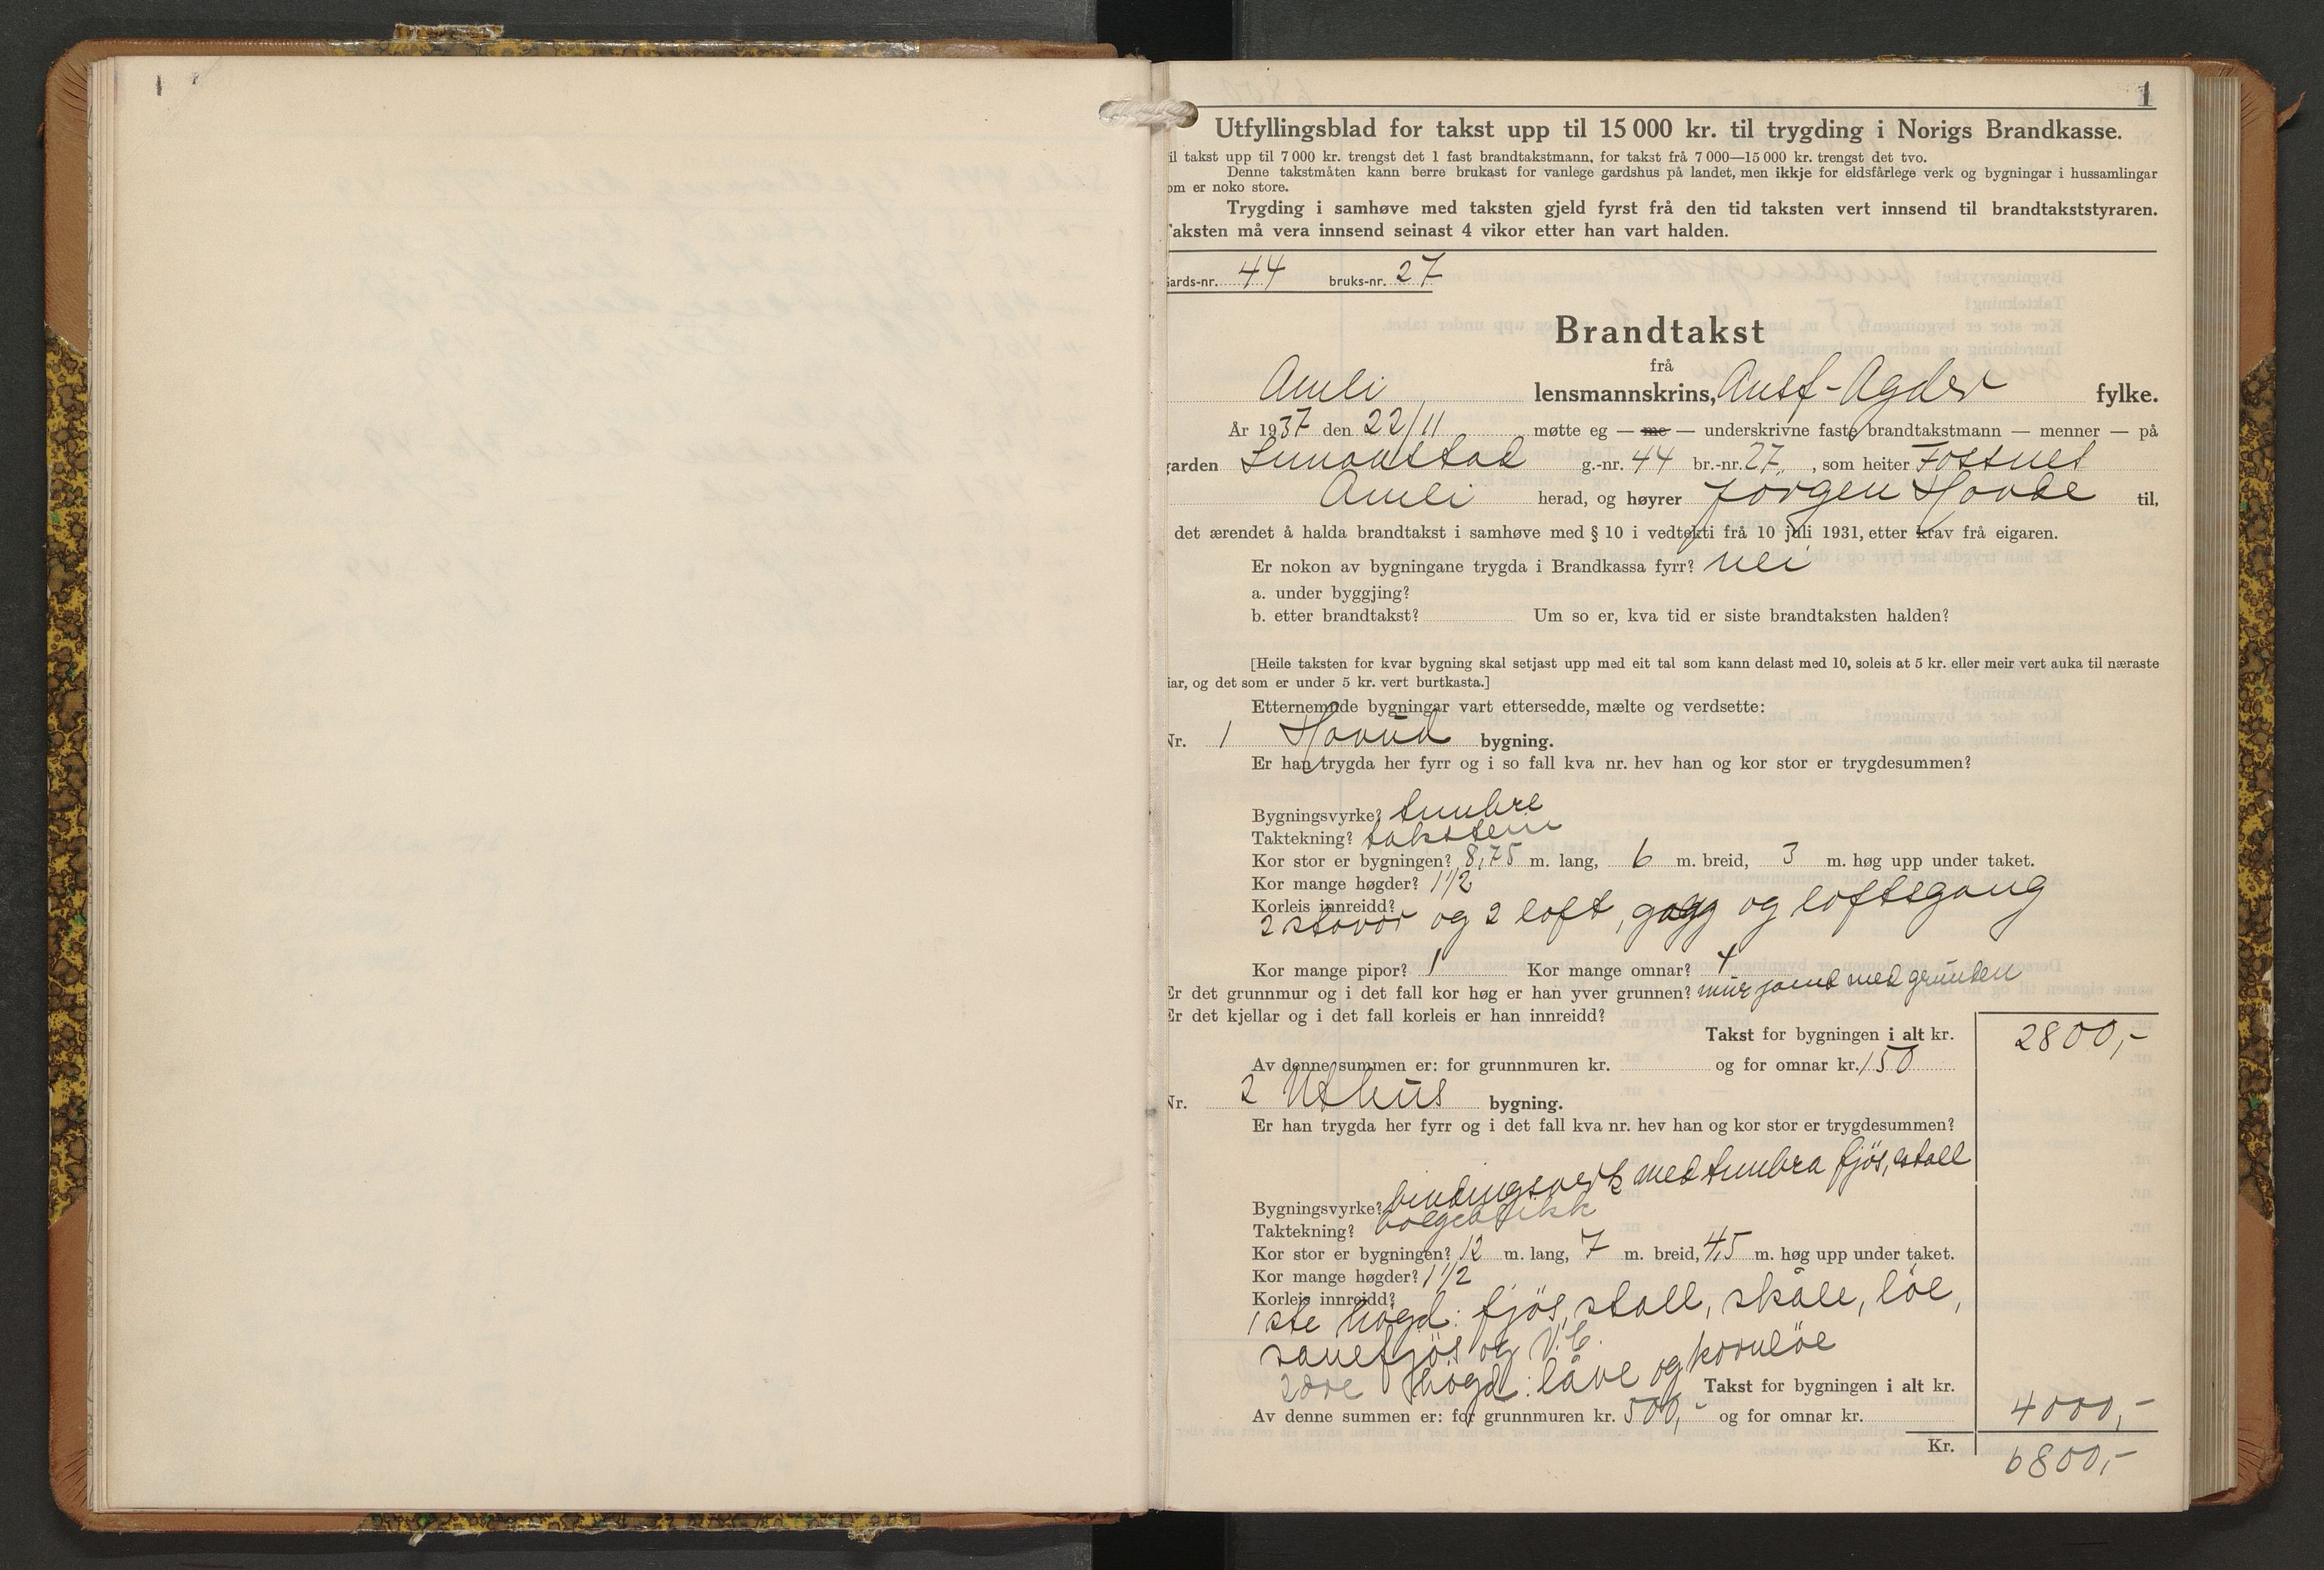 1
1
Utfyllingsblad for takst upp til 15 000 kr. til trygding i Norigs Brandkasse.
il takst upp til 7 000 kr. trengst det 1 fast brandtakstmann, for takst frå 7 000—15 000 kr. trengst det tvo.
Denne takstmåten kann berre brukast for vanlege gardshus på landet, men ikkje for eldsfårlege verk og bygningar i hussamlingar
om er noko store.
Trygding i samhøve med taksten gjeld fyrst frå den tid taksten vert innsend til brandtakststyraren.
aksten må vera innsend seinast 4 vikor etter han vart halden.
ards-nr. 44 bruks-nr. 27
Brandtakst
frå
Amli lensmannskrins, Aust-Agder fylke.
År 1937 den 22/11 møtte eg — me — underskrivne faste brandtakstmann — menner — på
garden Simonstad g.-nr. 44 br.-nr. 27, som heiter Fossnes
Amli herad, og høyrer Jörgen Hovde til,
det ærendet å halda brandtakst i samhøve med § 10 i vedtekti frå 10 juli 1931, etter krav frå eigaren.
Er nokon av bygningane trygda i Brandkassa fyrr? nei
a. under byggjing?
b. etter brandtakst? Um so er, kva tid er siste brandtaksten halden?
[Heile taksten for kvar bygning skal setjast upp med eit tal som kann delast med 10, soleis at 5 kr. eller meir vert auka til næraste
iar, og det som er under 5 kr. vert burtkasta.]
Etternemnde bygningar vart ettersedde, mælte og verdsette:
Nr. 1 Hovud bygning.
Er han trygda her fyrr og i so fall kva nr. hev han og kor stor er trygdesummen?
Bygningsvyrke? timbre
Taktekning? takstein
Kor stor er bygningen? 8,75 m. lang, 6 m. breid, 3 m. høg upp under taket.
Kor mange høgder? 1 1/2
Korleis innreidd?
2 stovor og 2 loft, gagg og loftsgang
Kor mange pipor? 1 Kor mange omnar? 4
Er det grunnmur og i det fall kor høg er han yver grunnen? mur jamt med grunden
Er det kjellar og i det fall korleis er han innreidd?
Takst for bygningen i alt kr. 2800,-
Av denne summen er: for grunnmuren kr. og for omnar kr. 150
Nr. 2 Uthus bygning.
Er han trygda her fyrr og i det fall kva nr. hev han og kor stor er trygdesummen?
Bygningsvyrke? bindingsverk med timbra fjös, stall
Taktekning? bølgeblikk
Kor stor er bygningen? 12 m. lang, 7 m. breid, 4,5 m. høg upp under taket.
Kor mange høgder? 1 1/2
Korleis innreidd?
1ste högd: fjös, stall, skåle, löe,
sauefjös og V.C.
2dre högd: låve og kornlöe
Takst for bygningen i alt kr. 4000,-
Av denne summen er: for grunnmuren kr. 500,- og for omnar kr.
Kr. 6800,-